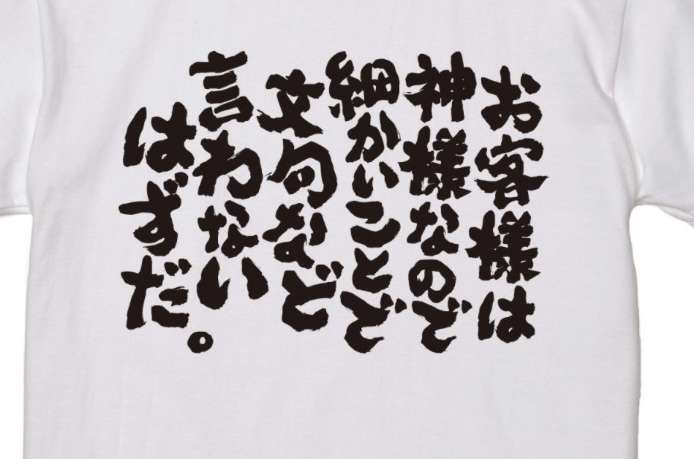 お客様は
神様なので
細かいことで
文句など
言わない
はずだ。